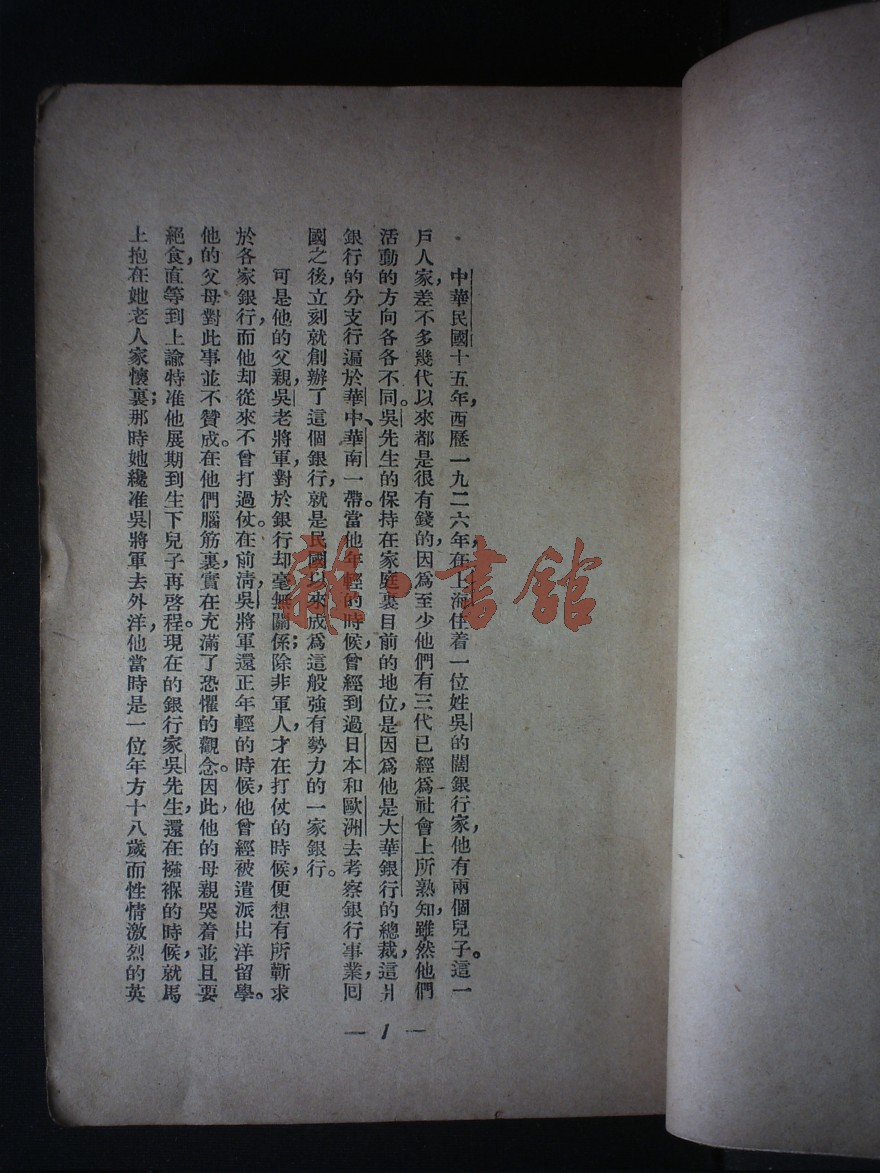 中華民國十五年，西歷一九二六年，在上海住着一位姓吳的闊銀行家，他有兩個兒子。這一
戶人家，差不多幾代以來都是很有錢的，因爲至少他們有三代已經爲社會上所熟知，雖然他們
活動的方向各各不同。吳先生的保持在家庭裏目前的地位，是因爲他是大華銀行的總裁，這爿
銀行的分支行遍於華中、華南一帶。當他年輕的時候，曾經到過日本和歐洲去考察銀行事業，囘
國之後，立刻就創辦了這個銀行，就是民國以來成爲這般強有勢力的一家銀行。
可是他的父親，吳老將軍，對於銀行却毫無關係；除非軍人，才在打仗的時候，便想有所蘄求
於各家銀行，而他却從來不曾打過仗。在前清，吳將軍還正年輕的時候，他曾經被遣派出洋留學。
他的父母對此事並不贊成。在他們腦筋裏，實在充滿了恐懼的觀念。因此，他的母親哭着並且要
絕食，直等到上諭特准他展期到生下兒子再啓程。現在的銀行家吳先生，還在襁褓的時候，就馬
上抱在她老人家懷裏；那時她纔准吳將軍去外洋，他當時是一位年方十八歲而性情激烈的英
— 1 —
雜·書館